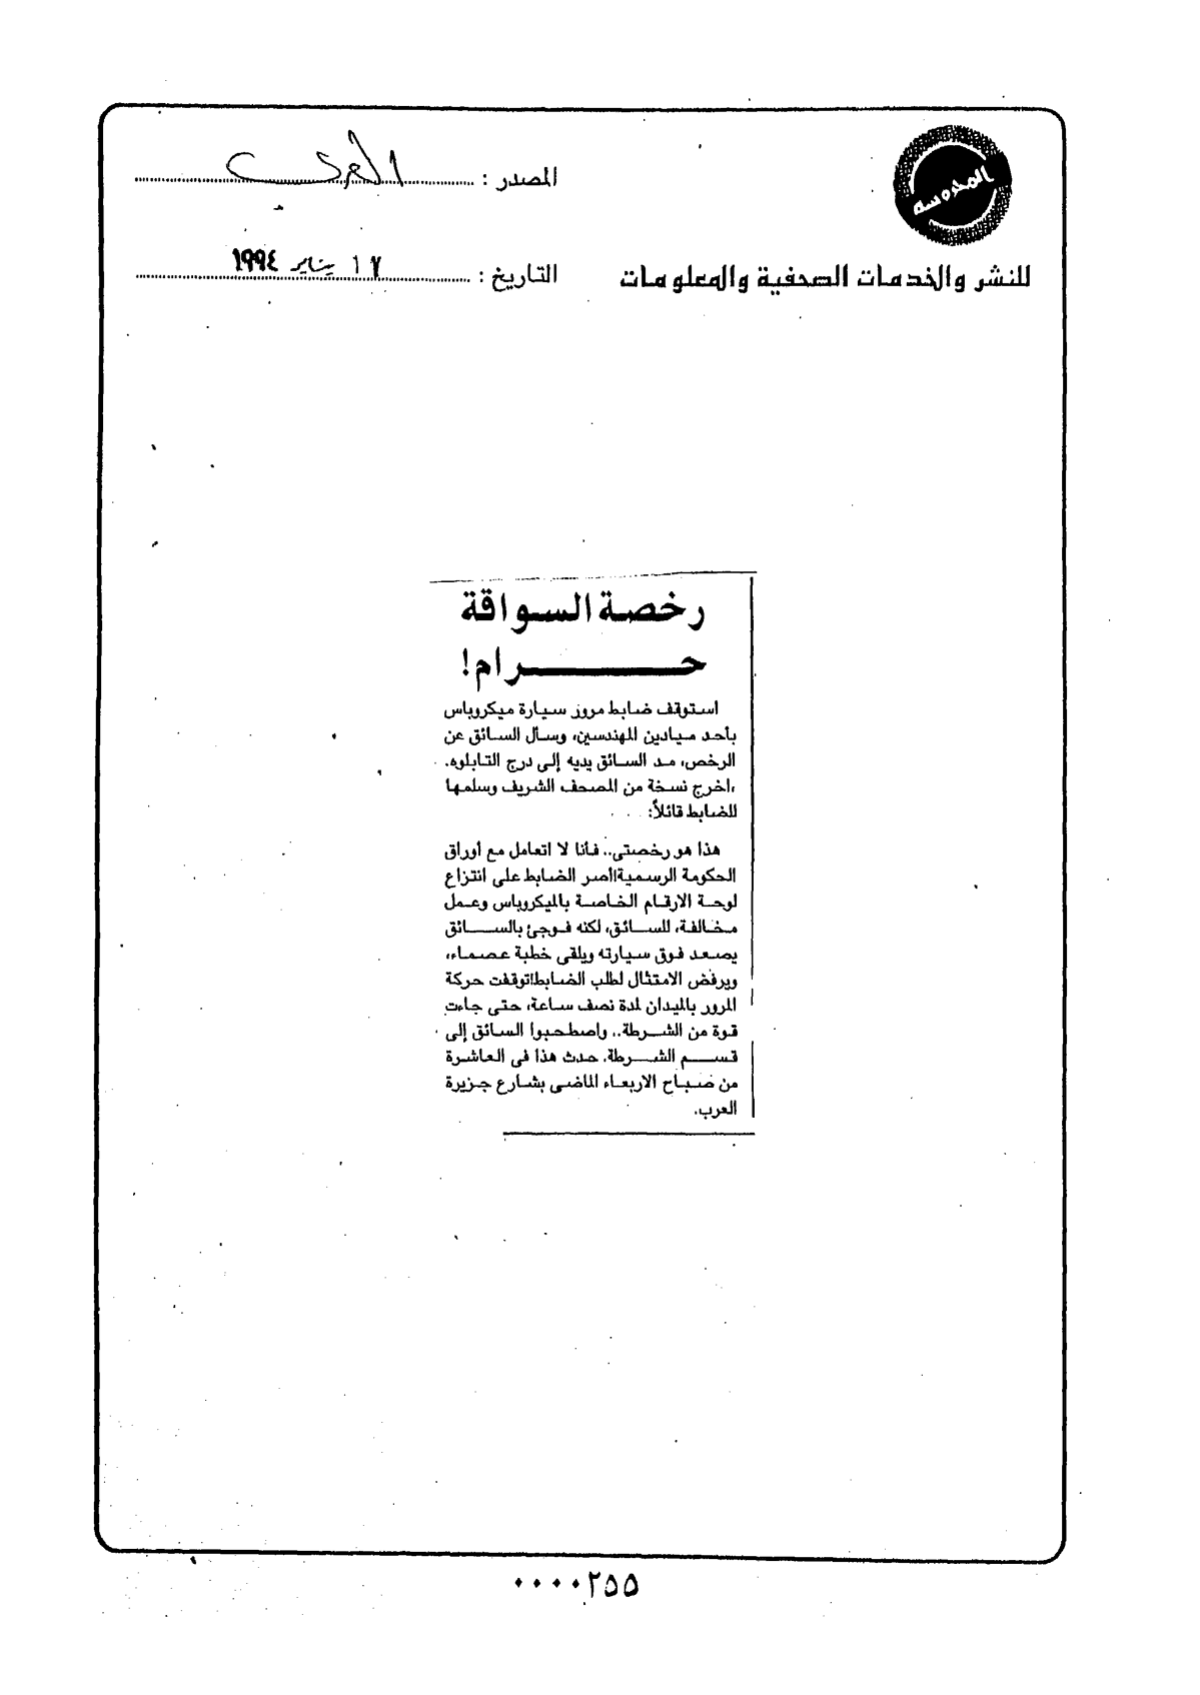 المحروسة
المصدر : العربى
للنشر والخدمات الصحفية والمعلومات
التاريخ : ١٧ يناير ١٩٩٤
رخصة السواقة
حرام!
استوقف ضابط مرور سيارة ميكروباس
بأحد ميادين المهندسين، وسأل السائق عن
الرخص، مد السائق يديه إلى درج التابلوه.
،اخرج نسخة من المصحف الشريف وسلمها
للضابط قائلاً:
هذا هو رخصتى.. فأنا لا اتعامل مع أوراق
الحكومة الرسمية!اصر الضابط على انتزاع
لوحة الارقام الخاصة بالميكروباس وعمل
مخالفة، للسائق، لكنه فوجئ بالسائق
يصعد فوق سيارته ويلقى خطبة عصماء،
ويرفض الامتثال لطلب الضابط!توقفت حركة
المرور بالميدان لمدة نصف ساعة، حتى جاءت
قوة من الشرطة.. واصطحبوا السائق إلى
قسم الشرطة. حدث هذا فى العاشرة
من صباح الاربعاء الماضى بشارع جزيرة
العرب.
٠٠٠٠٢٥٥